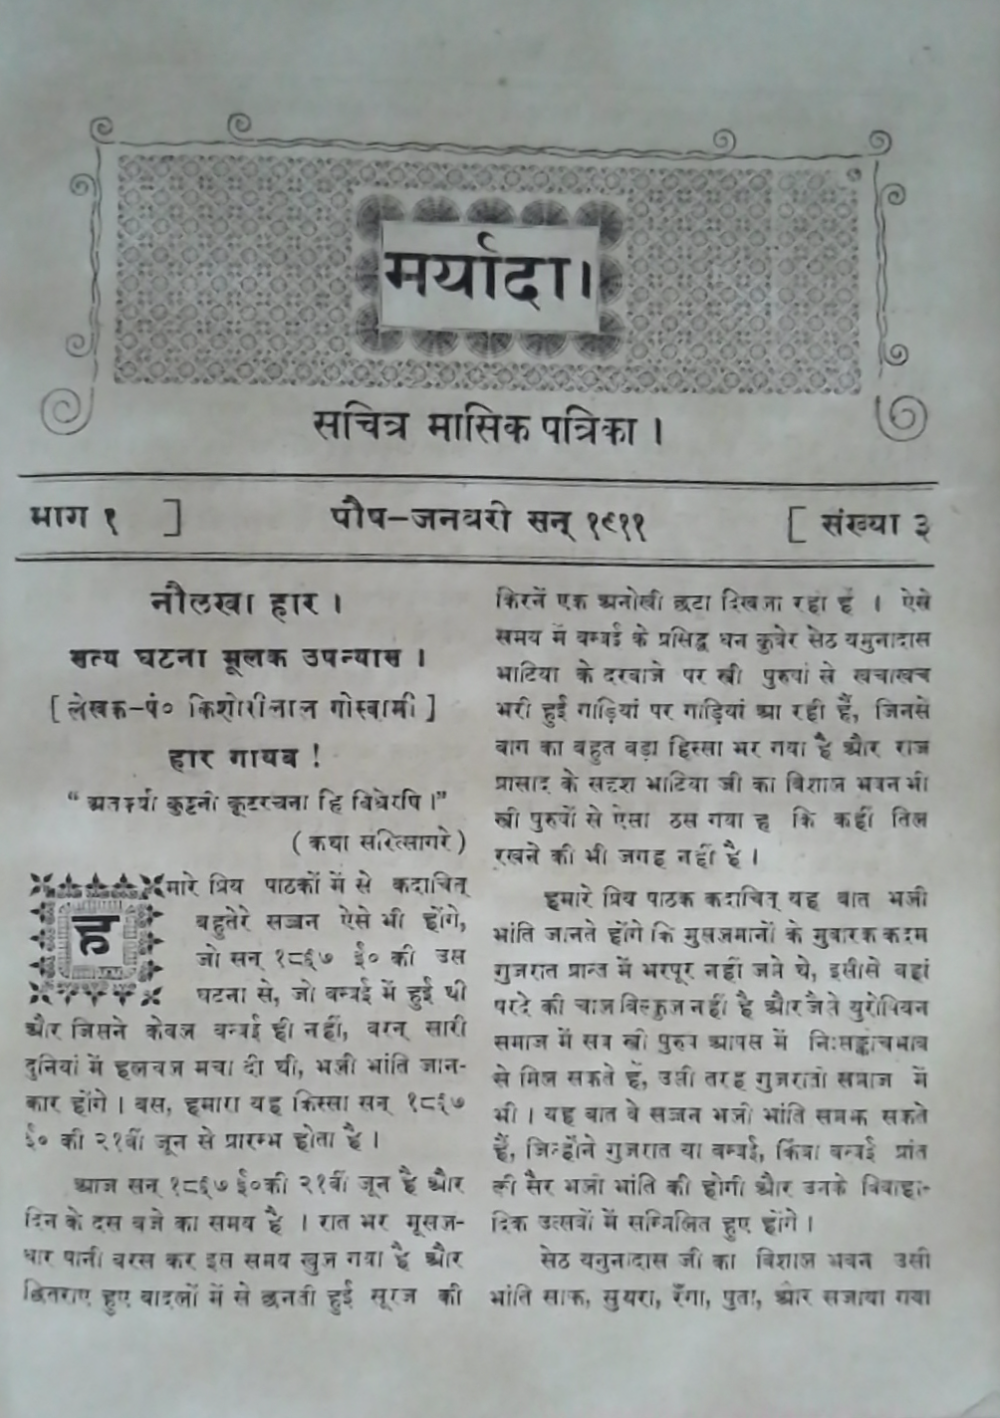 मर्यादा।
सचित्र मासिक पत्रिका ।
भाग १ ]
पौष-जनवरी सन् १९११
[ संख्या ३
नौलखा हार ।
सत्य घटना मूलक उपन्यास ।
[ लेखक-पं० किशोरीलाल गोस्वामी ]
हार गायब !
“ अतर्क्या कुट्टनी कूटरचना हि विधेरपि ।”
( कथा सरित्सागरे )
हमारे प्रिय पाठकों में से कदाचित्
बहुतेरे सज्जन ऐसे भी होंगे,
जो सन् १८६७ ई० की उस
घटना से, जो बम्बई में हुई थी
और जिसने केवल बम्बई ही नहीं, वरन् सारी
दुनियां में हलचल मचा दी थी, भली भांति जान-
कार होंगे । बस, हमारा यह किस्सा सन् १८६७
ई० की २१वीं जून से प्रारम्भ होता है ।
आज सन् १८६७ ई०की २१वीं जून है और
दिन के दस बजे का समय है । रात भर मूसल-
धार पानी बरस कर इस समय खुल गया है और
छितराए हुए बादलों में से छनती हुई सूरज की
किरनें एक अनोखी छटा दिखला रही हैं । ऐसे
समय में बम्बई के प्रसिद्ध धन कुबेर सेठ यमुनादास
भाटिया के दरवाजे पर स्त्री पुरुषों से खचाखच
भरी हुई गाड़ियां पर गाड़ियां आ रही हैं, जिनसे
बाग का बहुत बड़ा हिस्सा भर गया है और राज
प्रासाद के सदृश भाटिया जी का विशाल भवन भी
स्त्री पुरुषों से ऐसा ठस गया ह कि कहीं तिल
रखने की भी जगह नहीं है ।
हमारे प्रिय पाठक कदाचित् यह बात भली
भांति जानते होंगे कि मुसलमानों के मुबारक कदम
गुजरात प्रान्त में भरपूर नहीं जमे थे, इसीसे वहां
परदे की चाल बिल्कुल नहीं है और जैसे युरोपियन
समाज में सब स्त्री पुरुष आपस में निःसङ्कोचभाव
से मिल सकते हैं, उसी तरह गुजराती समाज में
भी । यह बात वे सज्जन भली भांति समझ सकते
हैं, जिन्होंने गुजरात या बम्बई, किंवा बम्बई प्रांत
की सैर भली भांति की होगी और उनके विवाहा-
दिक उत्सवों में सम्मिलित हुए होंगे ।
सेठ यमुनादास जी का विशाल भवन उसी
भांति साफ, सुथरा, रँगा, पुता, और सजाया गया